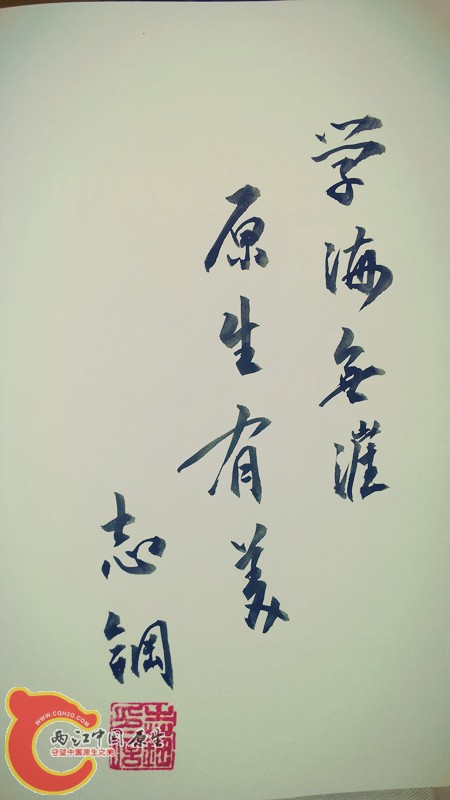 学海無涯
原生有美
志鋼
WWW.CQH2O.COM
两江中国 原生
守望中国原生之美